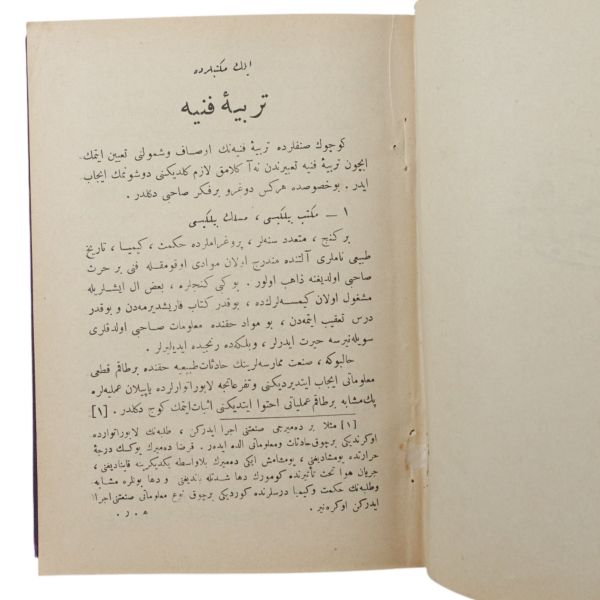 ايلك مكتبلرده
تربيهٔ فنيه
كوچوك صنفلرده تربيهٔ فنيه‌نك اوصاف وشمولنى تعيين ايتمك
ايچون تربيهٔ فنيه تعبيرندن نه آكلامق لازم كلديكنى دوشونمك ايجاب
ايدر . بوخصوصده هركس دوغرو برفكر صاحبى دكلدر .
١ ــ مكتب بيلكيسى ، مسلك بيلكيسى
بر كنج ، متعدد سنه‌لر ، پروغراملرده حكمت ، كيميا ، تاريخ
طبيعى ناملرى آلتنده مندرج اولان موادى اوقومقله فنى بر حرث
صاحبى اولديغنه ذاهب اولور . بو كى كنجلره ، بعض ال ايشلريله
مشغول اولان كيمسه‌لرك ده ، بوقدر كتاب قاريشديرمه‌دن و بوقدر
درس تعقيب ايتمه‌دن ، بو مواد حقنده معلومات صاحبى اولدقلرى
سويله‌نيرسه حيرت ايدرلر ، وبلكه‌ده رنجيده ايديليرلر .
حالبوكه ، صنعت ممارسه‌لرينك حادثات طبيعيه حقنده برطاقم قطعى
معلوماتى ايجاب ايتديرديكنى وتفرعاتجه لابوراتوارلرده ياپيلان عمليه‌لره
پك مشابه برطاقم عملياتى احتوا ايتديكنى اثبات ايتمك كوچ دكلدر . [١]
[١] مثلا بر ده‌ميرجى صنعتنى اجرا ايدركن ، طلبه‌نك لابوراتوارده
اوكرنديكى برچوق حادثات ومعلوماتى الده ايدر . فرضا ده‌ميرك يوكسك درجهٔ
حرارتده يومشاديغنى ، يومشامش ايكى ده‌ميرك بلاواسطه يكديكرينه قاينا‌ديغنى ،
جريان هوا تحت تأثيرنده كومورك دها شدتله يانديغنى و دها بونلره مشابه
وطلبه‌نك حكمت وكيميا درسلرنده كورديكى برچوق نوع معلوماتى صنعتنى اجرا
ايدركن اوكره‌نير .
ھ . ر .